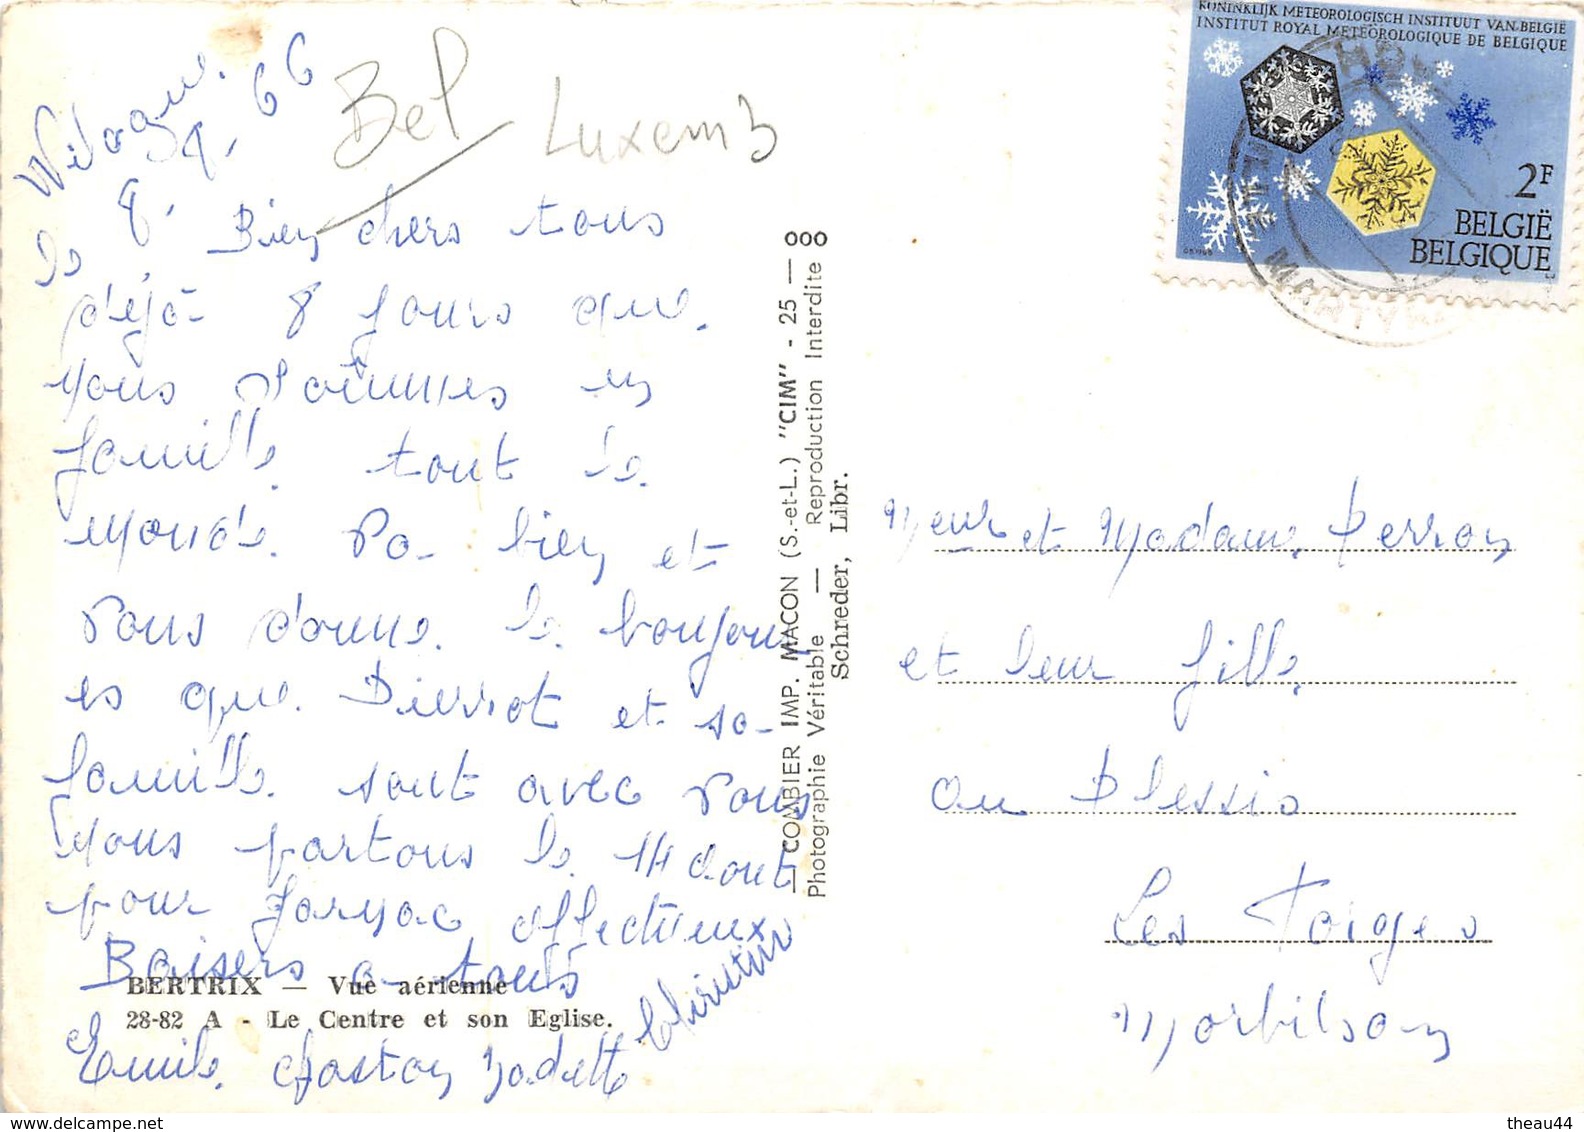 le 8. 8. 66
Bel
Luxemb
Bien chers tous
déjà 8 jours que
nous sommes en
famille tout le
monde va bien et
vous donne le bonjour
es que Pierrot et sa
famille sont avec vous
nous partons le 14 aout
pour Jarnac affectueux
Baisers a tous
Emile Gaston Nadette Christian
BERTRIX — Vue aérienne
28-82 A - Le Centre et son Eglise.
— COMBIER IMP. MACON (S.-et-L.) "CIM" - 25 — 000
Photographie Véritable — Reproduction Interdite
Schreder, Libr.
KONINKLIJK METEOROLOGISCH INSTITUUT VAN BELGIË
INSTITUT ROYAL METEOROLOGIQUE DE BELGIQUE
2F
BELGIË
BELGIQUE
Meur et Madame Perron
et leur fille
au Plessis
Les Forges
Morbihan
theau44